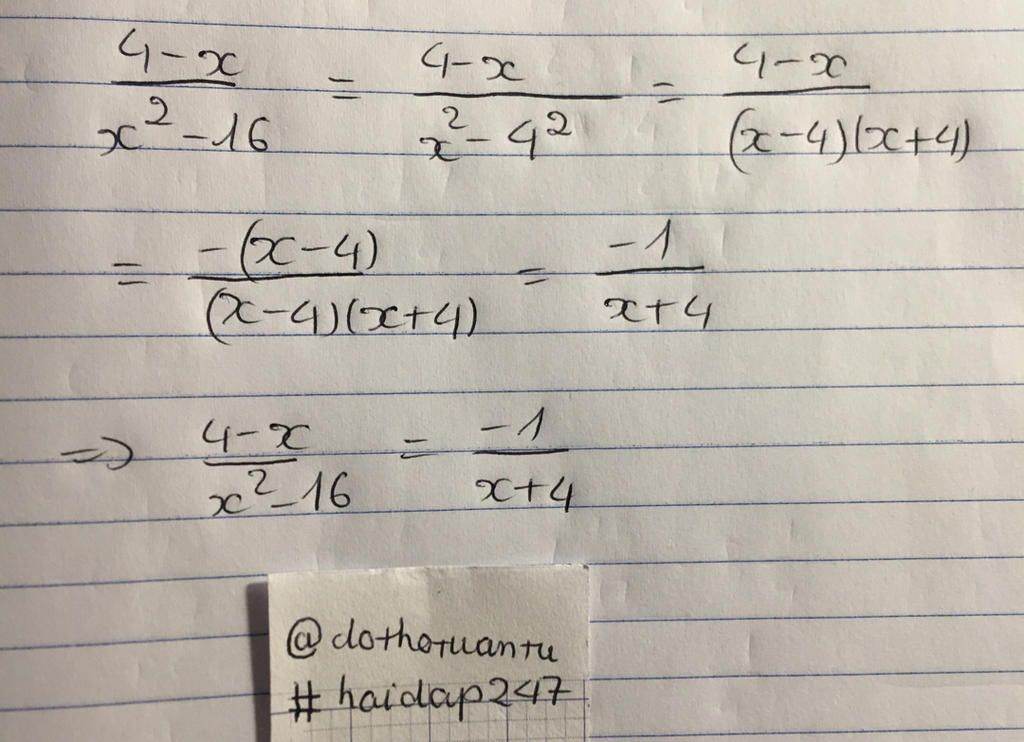 4-x / x²-16 = 4-x / x²-4² = 4-x / (x-4)(x+4)
= -(x-4) / (x-4)(x+4) = -1 / x+4
=> 4-x / x²-16 = -1 / x+4
@dothotuantu
#haidap247